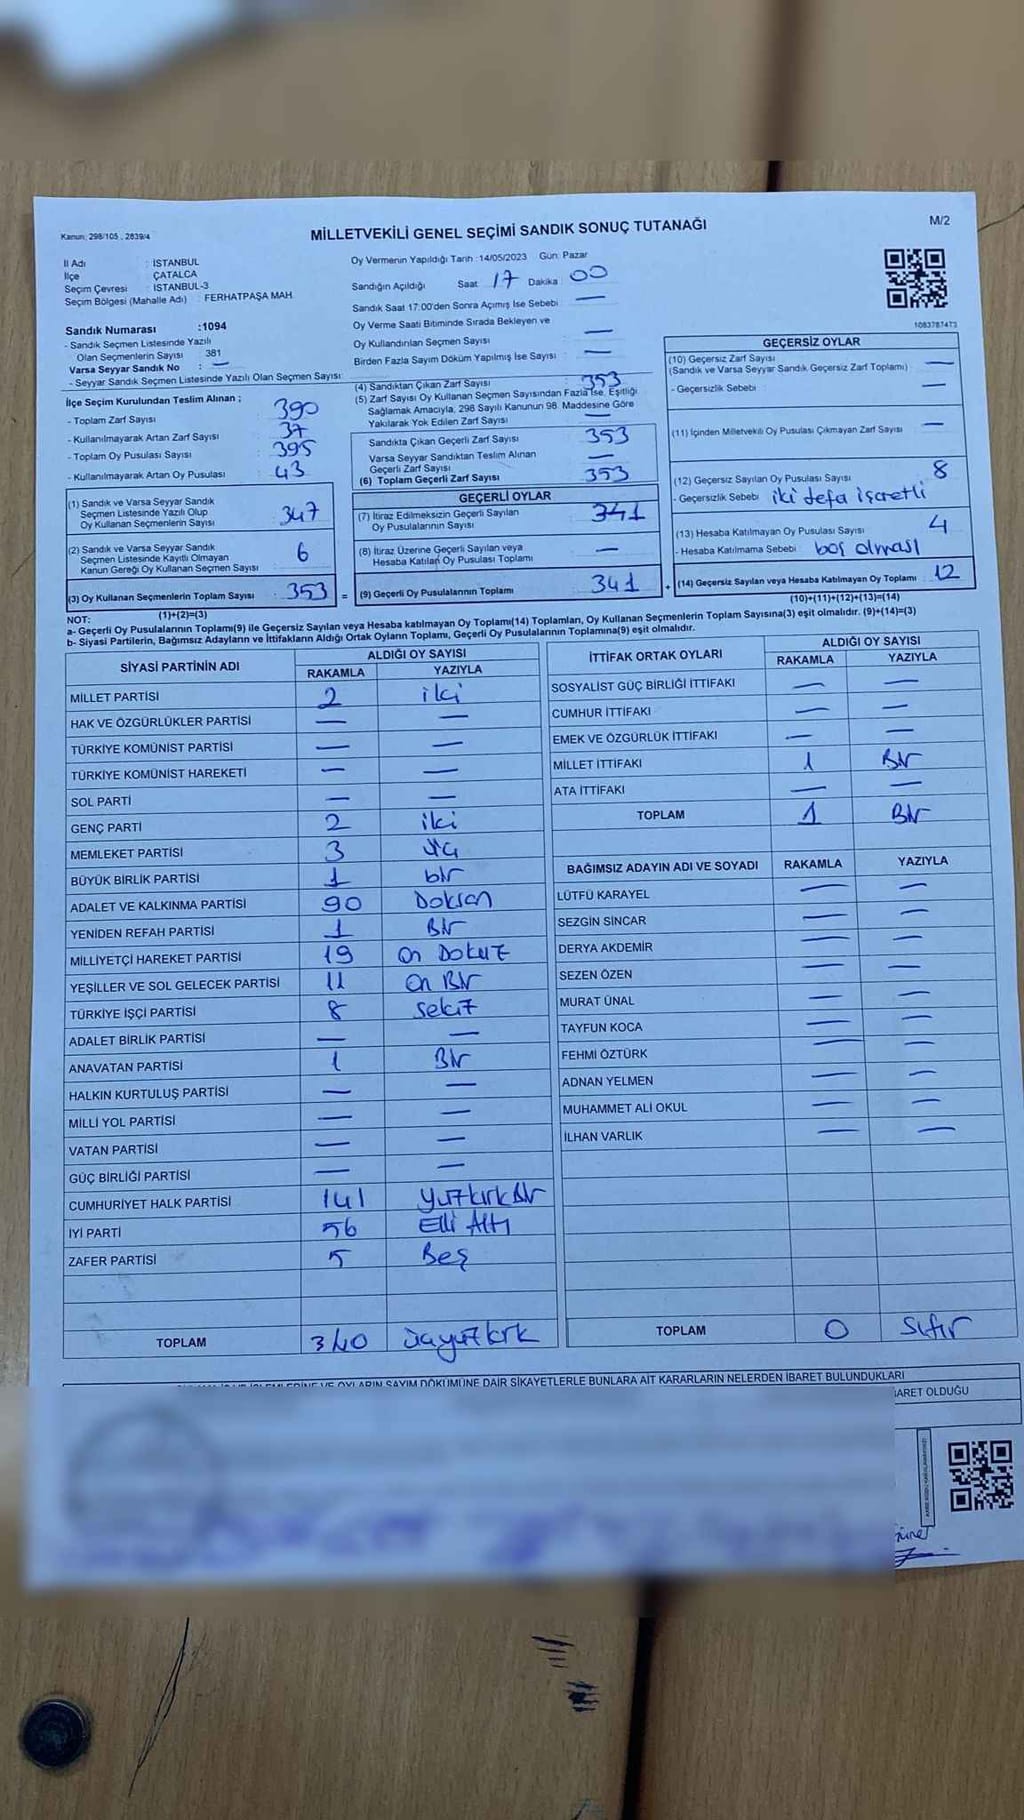 Kanun: 298/105 , 2839/4
MİLLETVEKİLİ GENEL SEÇİMİ SANDIK SONUÇ TUTANAĞI
M/2
İl Adı : İSTANBUL
İlçe : ÇATALCA
Seçim Çevresi : İSTANBUL-3
Seçim Bölgesi (Mahalle Adı) : FERHATPAŞA MAH.
Sandık Numarası :1094
- Sandık Seçmen Listesinde Yazılı
Olan Seçmenlerin Sayısı : 381
Varsa Seyyar Sandık No : —
- Seyyar Sandık Seçmen Listesinde Yazılı Olan Seçmen Sayısı:
İlçe Seçim Kurulundan Teslim Alınan ;
- Toplam Zarf Sayısı : 390
- Kullanılmayarak Artan Zarf Sayısı : 37
- Toplam Oy Pusulası Sayısı : 395
- Kullanılmayarak Artan Oy Pusulası : 43
(1) Sandık ve Varsa Seyyar Sandık
Seçmen Listesinde Yazılı Olup
Oy Kullanan Seçmenlerin Sayısı : 347
(2) Sandık ve Varsa Seyyar Sandık
Seçmen Listesinde Kayıtlı Olmayan
Kanun Gereği Oy Kullanan Seçmen Sayısı : 6
(3) Oy Kullanan Seçmenlerin Toplam Sayısı : 353
(1)+(2)=(3)
Oy Vermenin Yapıldığı Tarih :14/05/2023 Gün: Pazar
Sandığın Açıldığı Saat : 17 Dakika : 00
Sandık Saat 17:00'den Sonra Açılmış İse Sebebi : —
Oy Verme Saati Bitiminde Sırada Bekleyen ve
Oy Kullandırılan Seçmen Sayısı : —
Birden Fazla Sayım Döküm Yapılmış İse Sayısı : —
(4) Sandıktan Çıkan Zarf Sayısı : 353
(5) Zarf Sayısı Oy Kullanan Seçmen Sayısından Fazla İse, Eşitliği
Sağlamak Amacıyla, 298 Sayılı Kanunun 98. Maddesine Göre
Yakılarak Yok Edilen Zarf Sayısı : —
Sandıkta Çıkan Geçerli Zarf Sayısı : 353
Varsa Seyyar Sandıktan Teslim Alınan
Geçerli Zarf Sayısı : —
(6) Toplam Geçerli Zarf Sayısı : 353
GEÇERLİ OYLAR
(7) İtiraz Edilmeksizin Geçerli Sayılan
Oy Pusulalarının Sayısı : 341
(8) İtiraz Üzerine Geçerli Sayılan veya
Hesaba Katılan Oy Pusulası Toplamı : —
= (9) Geçerli Oy Pusulalarının Toplamı : 341 +
1083787473
GEÇERSİZ OYLAR
(10) Geçersiz Zarf Sayısı
(Sandık ve Varsa Seyyar Sandık Geçersiz Zarf Toplamı) : —
- Geçersizlik Sebebi : —
(11) İçinden Milletvekili Oy Pusulası Çıkmayan Zarf Sayısı : —
(12) Geçersiz Sayılan Oy Pusulası Sayısı : 8
- Geçersizlik Sebebi : iki defa işaretli
(13) Hesaba Katılmayan Oy Pusulası Sayısı : 4
- Hesaba Katılmama Sebebi : boş olması
(14) Geçersiz Sayılan veya Hesaba Katılmayan Oy Toplamı : 12
(10)+(11)+(12)+(13)=(14)
NOT:
a- Geçerli Oy Pusulalarının Toplamı(9) ile Geçersiz Sayılan veya Hesaba katılmayan Oy Toplamı(14) Toplamları, Oy Kullanan Seçmenlerin Toplam Sayısına(3) eşit olmalıdır. (9)+(14)=(3)
b- Siyasi Partilerin, Bağımsız Adayların ve İttifakların Aldığı Ortak Oyların Toplamı, Geçerli Oy Pusulalarının Toplamına(9) eşit olmalıdır.
SİYASİ PARTİNİN ADI
ALDIĞI OY SAYISI
RAKAMLA YAZIYLA
MİLLET PARTİSİ 2 iki
HAK VE ÖZGÜRLÜKLER PARTİSİ — —
TÜRKİYE KOMÜNİST PARTİSİ — —
TÜRKİYE KOMÜNİST HAREKETİ — —
SOL PARTİ — —
GENÇ PARTİ 2 iki
MEMLEKET PARTİSİ 3 üç
BÜYÜK BİRLİK PARTİSİ 1 bir
ADALET VE KALKINMA PARTİSİ 90 Doksan
YENİDEN REFAH PARTİSİ 1 Bir
MİLLİYETÇİ HAREKET PARTİSİ 19 On Dokuz
YEŞİLLER VE SOL GELECEK PARTİSİ 11 On Bir
TÜRKİYE İŞÇİ PARTİSİ 8 sekiz
ADALET BİRLİK PARTİSİ — —
ANAVATAN PARTİSİ 1 Bir
HALKIN KURTULUŞ PARTİSİ — —
MİLLİ YOL PARTİSİ — —
VATAN PARTİSİ — —
GÜÇ BİRLİĞİ PARTİSİ — —
CUMHURİYET HALK PARTİSİ 141 Yüzkırk Bir
İYİ PARTİ 56 Elli Altı
ZAFER PARTİSİ 5 Beş
TOPLAM 340 üçyüzkırk
İTTİFAK ORTAK OYLARI
ALDIĞI OY SAYISI
RAKAMLA YAZIYLA
SOSYALİST GÜÇ BİRLİĞİ İTTİFAKI — —
CUMHUR İTTİFAKI — —
EMEK VE ÖZGÜRLÜK İTTİFAKI — —
MİLLET İTTİFAKI 1 Bir
ATA İTTİFAKI — —
TOPLAM 1 Bir
BAĞIMSIZ ADAYIN ADI VE SOYADI RAKAMLA YAZIYLA
LÜTFÜ KARAYEL — —
SEZGİN SİNCAR — —
DERYA AKDEMİR — —
SEZEN ÖZEN — —
MURAT ÜNAL — —
TAYFUN KOCA — —
FEHMİ ÖZTÜRK — —
ADNAN YELMEN — —
MUHAMMET ALİ OKUL — —
İLHAN VARLIK — —
TOPLAM 0 Sıfır
VE OYLARIN SAYIM DÖKÜMÜNE DAİR ŞİKAYETLERLE BUNLARA AİT KARARLARIN NELERDEN İBARET BULUNDUKLARI
OLDUĞU